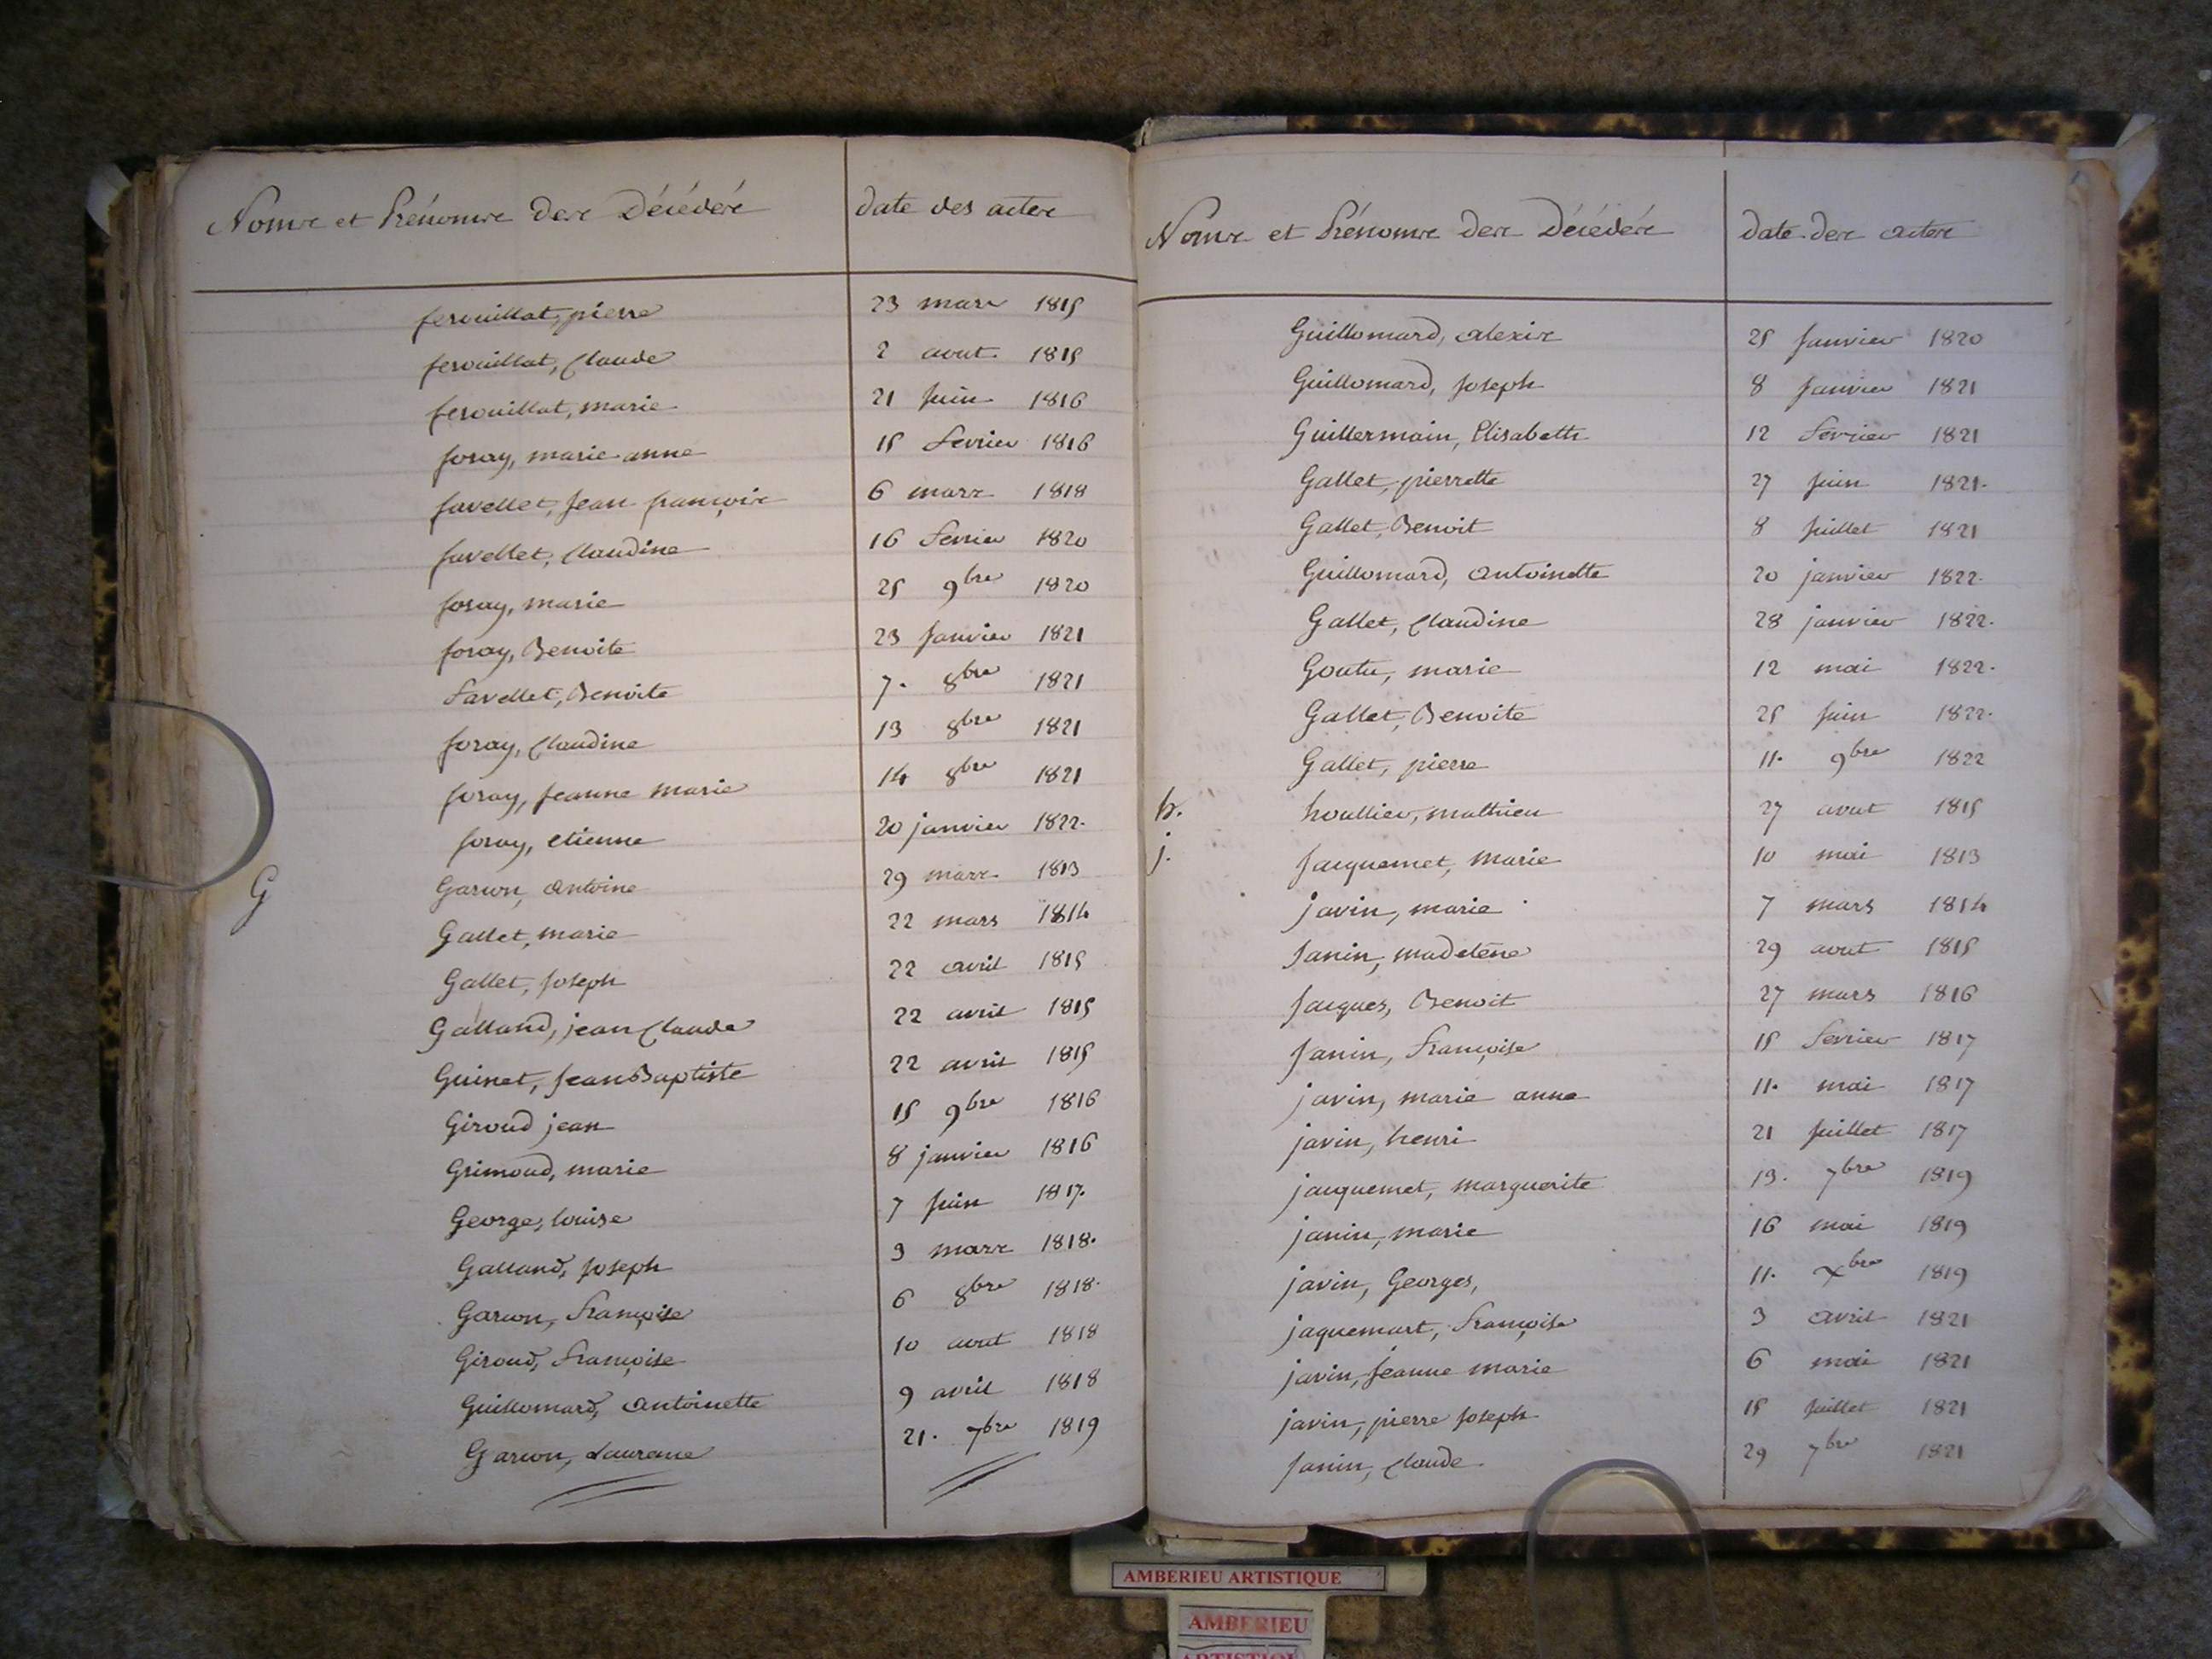 Noms et Prénoms des Décédés date des actes
ferouillat, pierre 23 mars 1815
ferouillat, Claude 2 aout 1815
ferouillat, marie 21 Juin 1816
foray, marie anne 15 fevrier 1816
favellet, Jean françois 6 mars 1818
favellet, Claudine 16 fevrier 1820
foray, marie 25 9bre 1820
foray, Benoite 23 Janvier 1821
favellet, Benoite 7. 8bre 1821
foray, Claudine 13 8bre 1821
foray, Jeanne marie 14 8bre 1821
foray, etienne 20 janvier 1822.
G Garson, Antoine 29 mars 1813
Gallet, marie 22 mars 1814
Gallet, Joseph 22 avril 1815
Galland, jean Claude 22 avril 1815
Guinet, Jean Baptiste 22 avril 1815
Giroud jean 15 9bre 1816
Grimoud, marie 8 janvier 1816
George, louise 7 Juin 1817.
Galland, Joseph 3 mars 1818.
Garcon, Françoise 6 8bre 1818.
Giroud, Françoise 10 aout 1818
Guillomard, Antoinette 9 avril 1818
Garcon, Laurence 21. 7bre 1819
Noms et Prénoms des Décédés date des actes
Guillomard, alexis 25 Janvier 1820
Guillomard, Joseph 8 Janvier 1821
Guillermain, Elisabeth 12 fevrier 1821
Gallet, pierrette 27 Juin 1821.
Gallet, Benoit 8 Juillet 1821
Guillomard, Antoinette 20 janvier 1822.
Gallet, Claudine 28 janvier 1822.
Goutu, marie 12 mai 1822.
Gallet, Benoite 25 Juin 1822.
Gallet, pierre 11. 9bre 1822
h. houllier, mathieu 27 aout 1815
j. Jacquemet, marie 10 mai 1813
javin, marie 7 mars 1814
Janin, madelène 29 aout 1815
Jacques, Benoit 27 mars 1816
Janin, Françoise 15 fevrier 1817
javin, marie anne 11. mai 1817
javin, henri 21 Juillet 1817
jacquemet, marguerite 13. 7bre 1819
janin, marie 16 mai 1819
javin, Georges, 11. Xbre 1819
jaquemart, Françoise 3 avril 1821
javin, Jeanne marie 6 mai 1821
javin, pierre Joseph 15 Juillet 1821
Janin, Claude 29 7bre 1821
AMBERIEU ARTISTIQUE
AMBERIEU
ARTISTIQUE